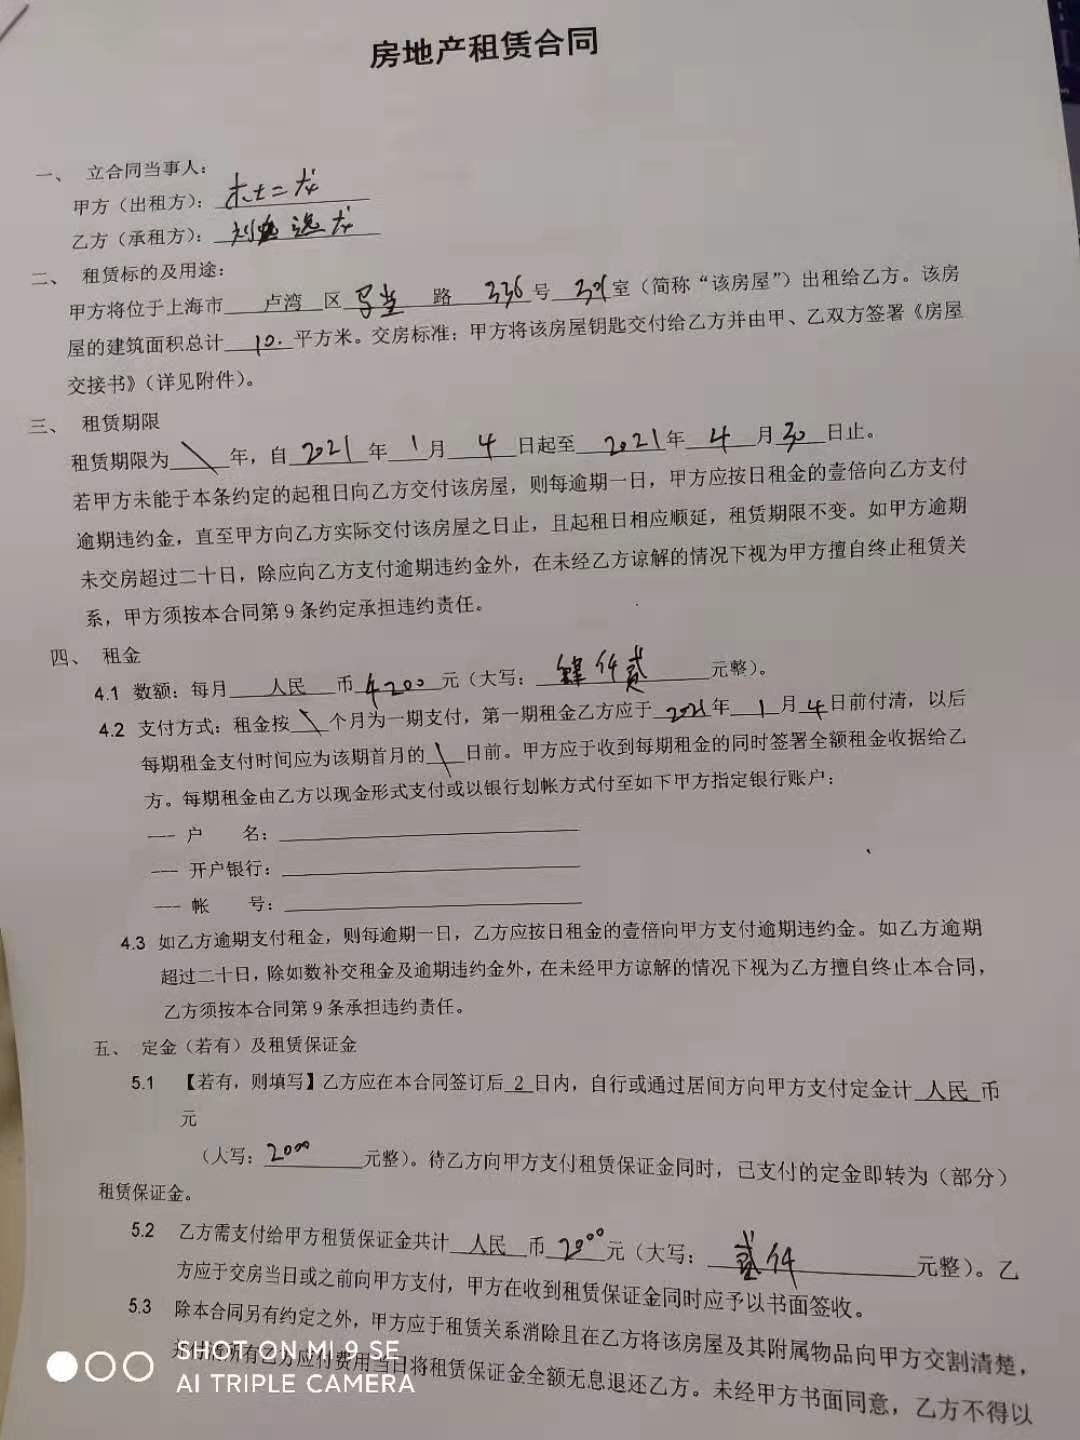 房地产租赁合同
一、 立合同当事人：
甲方（出租方）： 杜二龙
乙方（承租方）： 刘 逸龙
二、 租赁标的及用途：
甲方将位于上海市 卢湾 区 马当 路 336 号 室（简称“该房屋”）出租给乙方。该房
屋的建筑面积总计 10. 平方米。交房标准：甲方将该房屋钥匙交付给乙方并由甲、乙双方签署《房屋
交接书》（详见附件）。
三、 租赁期限
租赁期限为 \ 年，自 2021 年 1 月 4 日起至 2021 年 4 月 30 日止。
若甲方未能于本条约定的起租日向乙方交付该房屋，则每逾期一日，甲方应按日租金的壹倍向乙方支付
逾期违约金，直至甲方向乙方实际交付该房屋之日止，且起租日相应顺延，租赁期限不变。如甲方逾期
未交房超过二十日，除应向乙方支付逾期违约金外，在未经乙方谅解的情况下视为甲方擅自终止租赁关
系，甲方须按本合同第 9 条约定承担违约责任。
四、 租金
4.1 数额：每月 人民 币 4200 元（大写： 肆仟贰 元整）。
4.2 支付方式：租金按 \ 个月为一期支付，第一期租金乙方应于 2021 年 1 月 4 日前付清，以后
每期租金支付时间应为该期首月的 \ 日前。甲方应于收到每期租金的同时签署全额租金收据给乙
方。每期租金由乙方以现金形式支付或以银行划帐方式付至如下甲方指定银行账户：
--- 户 名：
--- 开户银行：
--- 帐 号：
4.3 如乙方逾期支付租金，则每逾期一日，乙方应按日租金的壹倍向甲方支付逾期违约金。如乙方逾期
超过二十日，除如数补交租金及逾期违约金外，在未经甲方谅解的情况下视为乙方擅自终止本合同，
乙方须按本合同第 9 条承担违约责任。
五、 定金（若有）及租赁保证金
5.1 【若有，则填写】乙方应在本合同签订后 2 日内，自行或通过居间方向甲方支付定金计 人民 币
元
（大写： 2000 元整）。待乙方向甲方支付租赁保证金同时，已支付的定金即转为（部分）
租赁保证金。
5.2 乙方需支付给甲方租赁保证金共计 人民 币 2000 元（大写： 贰仟 元整）。乙
方应于交房当日或之前向甲方支付，甲方在收到租赁保证金同时应予以书面签收。
5.3 除本合同另有约定之外，甲方应于租赁关系消除且在乙方将该房屋及其附属物品向甲方交割清楚，
所有乙方应付费用当日将租赁保证金全额无息退还乙方。未经甲方书面同意，乙方不得以
SHOT ON MI 9 SE
AI TRIPLE CAMERA